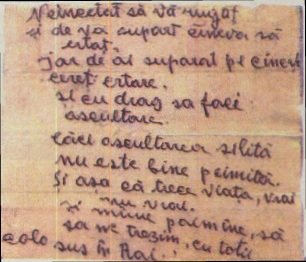 Neîncetat să vă rugați
și de vă supără cineva să
ertați.
iar de ai suparat pe cineva
cereț ertare.
și cu drag sa faci
ascultare.
căci ascultarea silită
nu este bine primită.
Și asa că trece viata, vrai
nu vrai.
și mîine poimîne, să
sa ne trezim, cu totii
acolo sus în Rai.